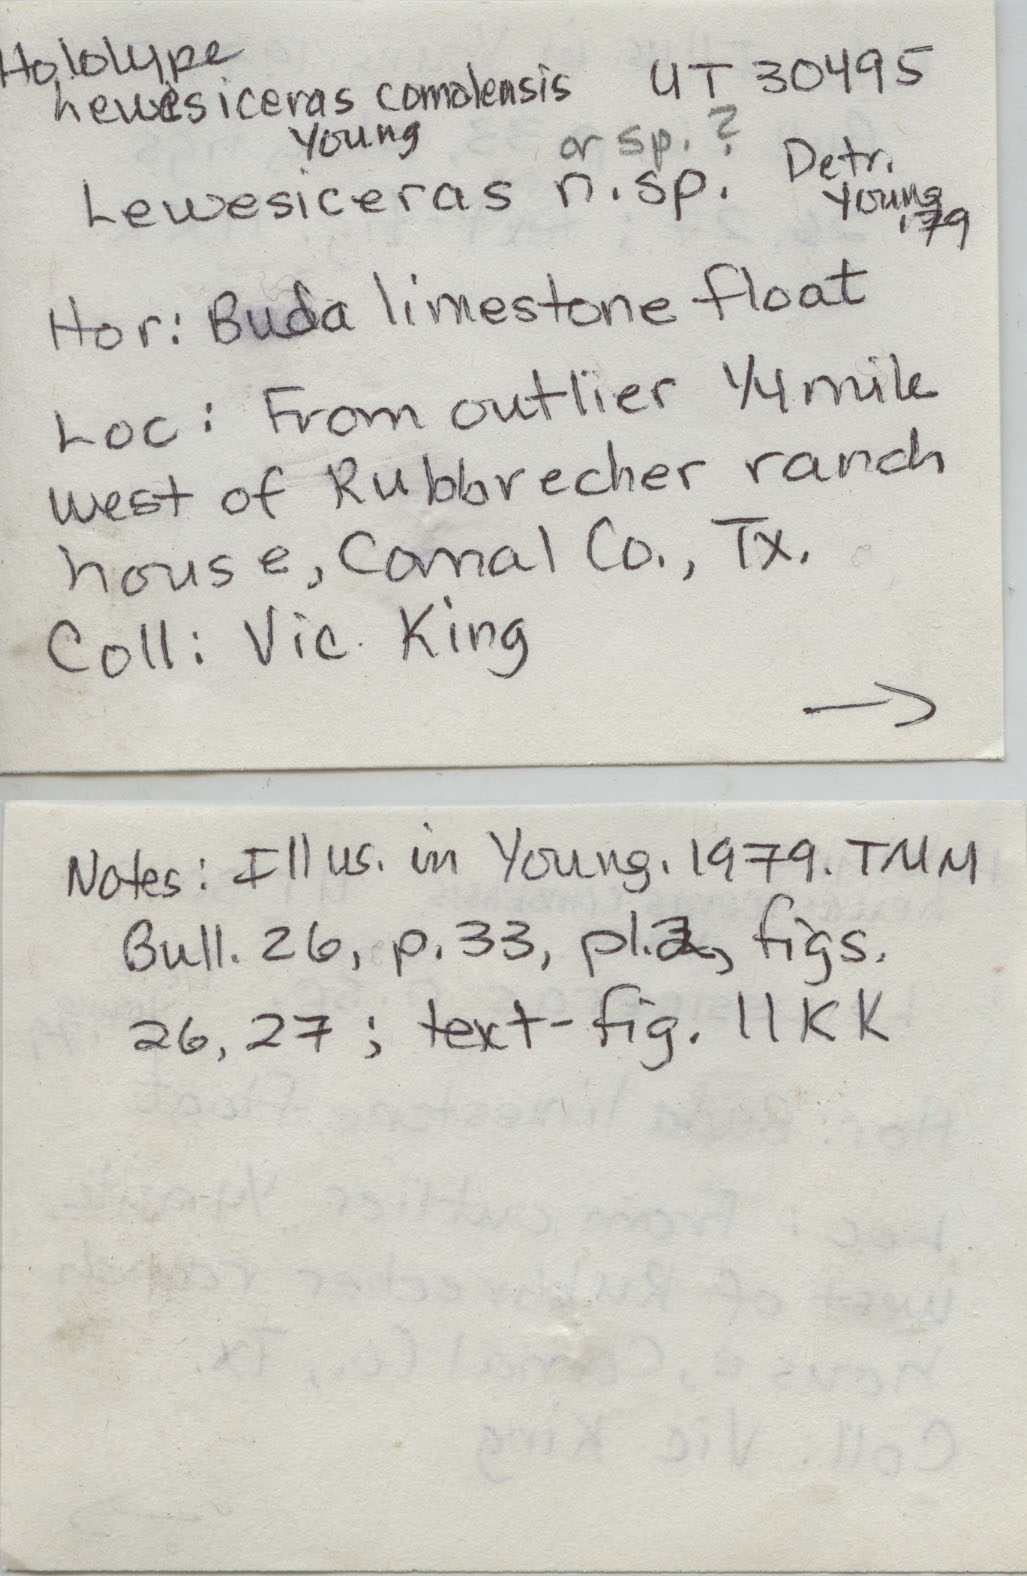 Holotype
Lewesiceras comalensis UT 30495
Young or sp. ?
Lewesiceras n.sp. Detr.
Young
'79
Hor: Buda limestone float
Loc: From outlier 1/4 mile
west of Rubbrecher ranch
house, Comal Co., Tx.
Coll: Vic. King
→
Notes: Illus. in Young. 1979. TMM
Bull. 26, p. 33, pl. 2, figs.
26, 27; text-fig. 11KK